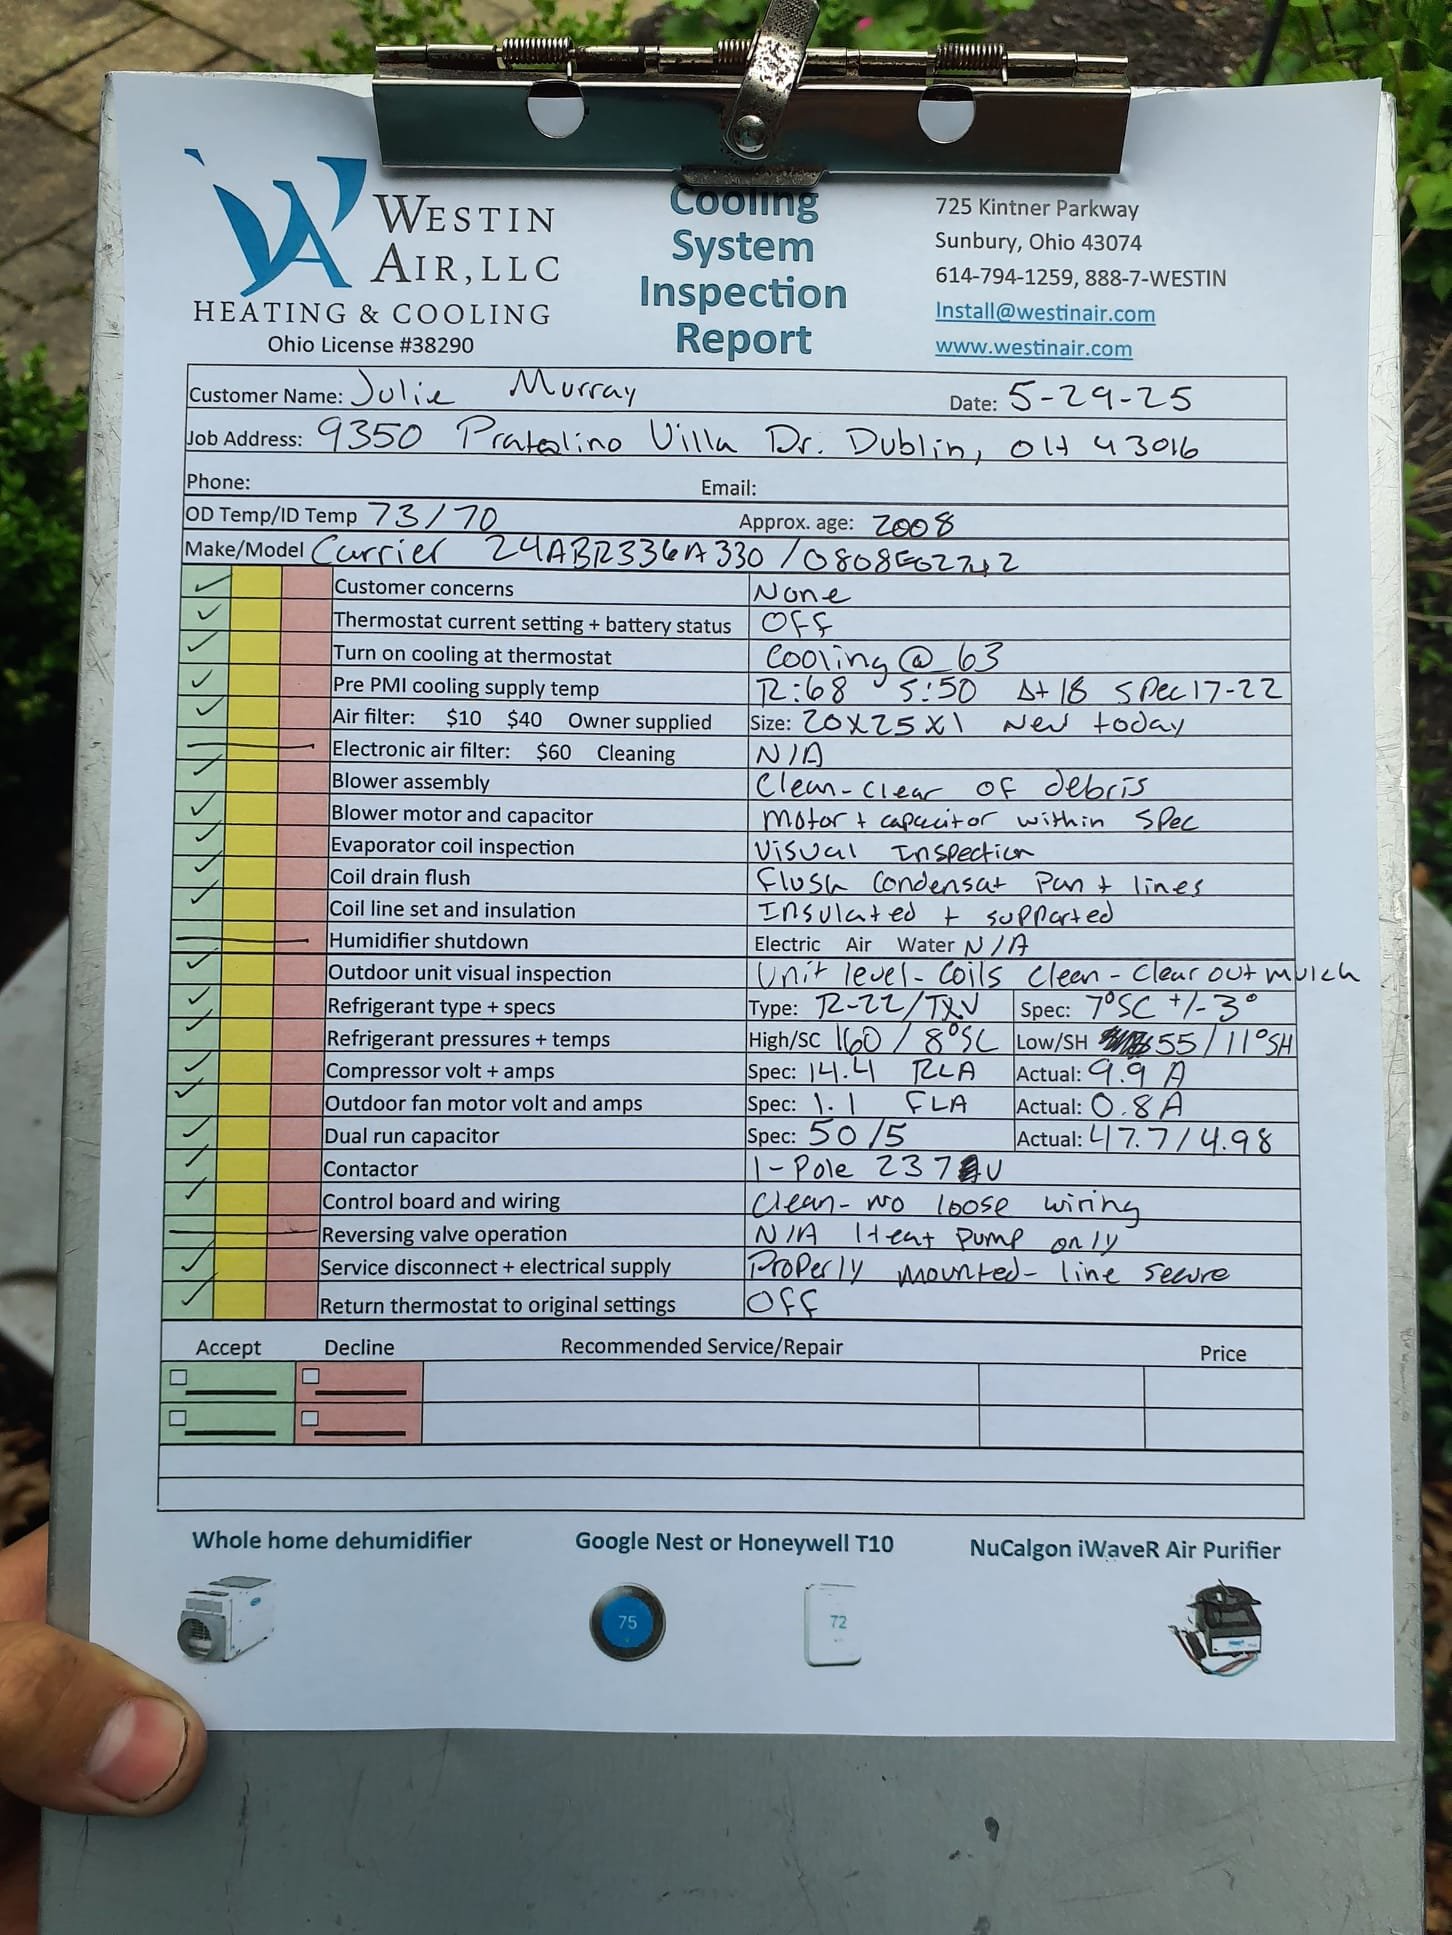 WESTIN
AIR, LLC
HEATING & COOLING
Ohio License #38290
Cooling
System
Inspection
Report
725 Kintner Parkway
Sunbury, Ohio 43074
614-794-1259, 888-7-WESTIN
Install@westinair.com
www.westinair.com
Customer Name: Julie Murray Date: 5-29-25
Job Address: 9350 Pratolino Villa Dr. Dublin, OH 43016
Phone: Email:
OD Temp/ID Temp 73/70 Approx. age: 2008
Make/Model Carrier 24ABR336A330 /
Customer concerns None
Thermostat current setting + battery status Off
Turn on cooling at thermostat Cooling @ 63
Pre PMI cooling supply temp R:68 S:50 Δt 18 Spec 17-22
Air filter: $10 $40 Owner supplied Size: 20x25x1 New today
Electronic air filter: $60 Cleaning N/A
Blower assembly Clean-clear of debris
Blower motor and capacitor Motor + capacitor within spec
Evaporator coil inspection Visual Inspection
Coil drain flush Flush Condensat Pan + lines
Coil line set and insulation Insulated + supported
Humidifier shutdown Electric Air Water N/A
Outdoor unit visual inspection Unit level-Coils Clean-Clear out mulch
Refrigerant type + specs Type: R-22/TXV Spec: 7°SC +/- 3°
Refrigerant pressures + temps High/SC 160 / 8°SC Low/SH 55 / 11°SH
Compressor volt + amps Spec: 14.4 RLA Actual: 9.9 A
Outdoor fan motor volt and amps Spec: 1.1 FLA Actual: 0.8A
Dual run capacitor Spec: 50/5 Actual: 47.7/4.98
Contactor 1-Pole 237 V
Control board and wiring Clean-No loose wiring
Reversing valve operation N/A Heat Pump only
Service disconnect + electrical supply Properly mounted-line secure
Return thermostat to original settings Off
Accept Decline Recommended Service/Repair Price
Whole home dehumidifier Google Nest or Honeywell T10 NuCalgon iWaveR Air Purifier
75 72